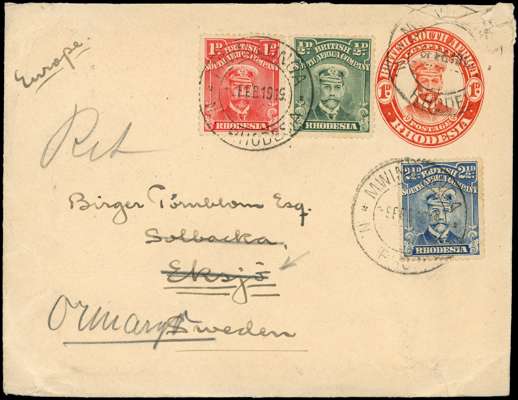 Europe.
1D BRITISH 1D
SOUTH AFRICA COMPANY
RHODESIA
½D BRITISH ½D
SOUTH AFRICA COMPANY
RHODESIA
FEB 1919
RHODESIA
BRITISH SOUTH AFRICA
COMPANY
1D 1D
POSTAGE
RHODESIA
Birger Törnblom Esq.
Solbacka,
Eksjö
Sweden
2½D BRITISH 2½D
SOUTH AFRICA COMPANY
RHODESIA